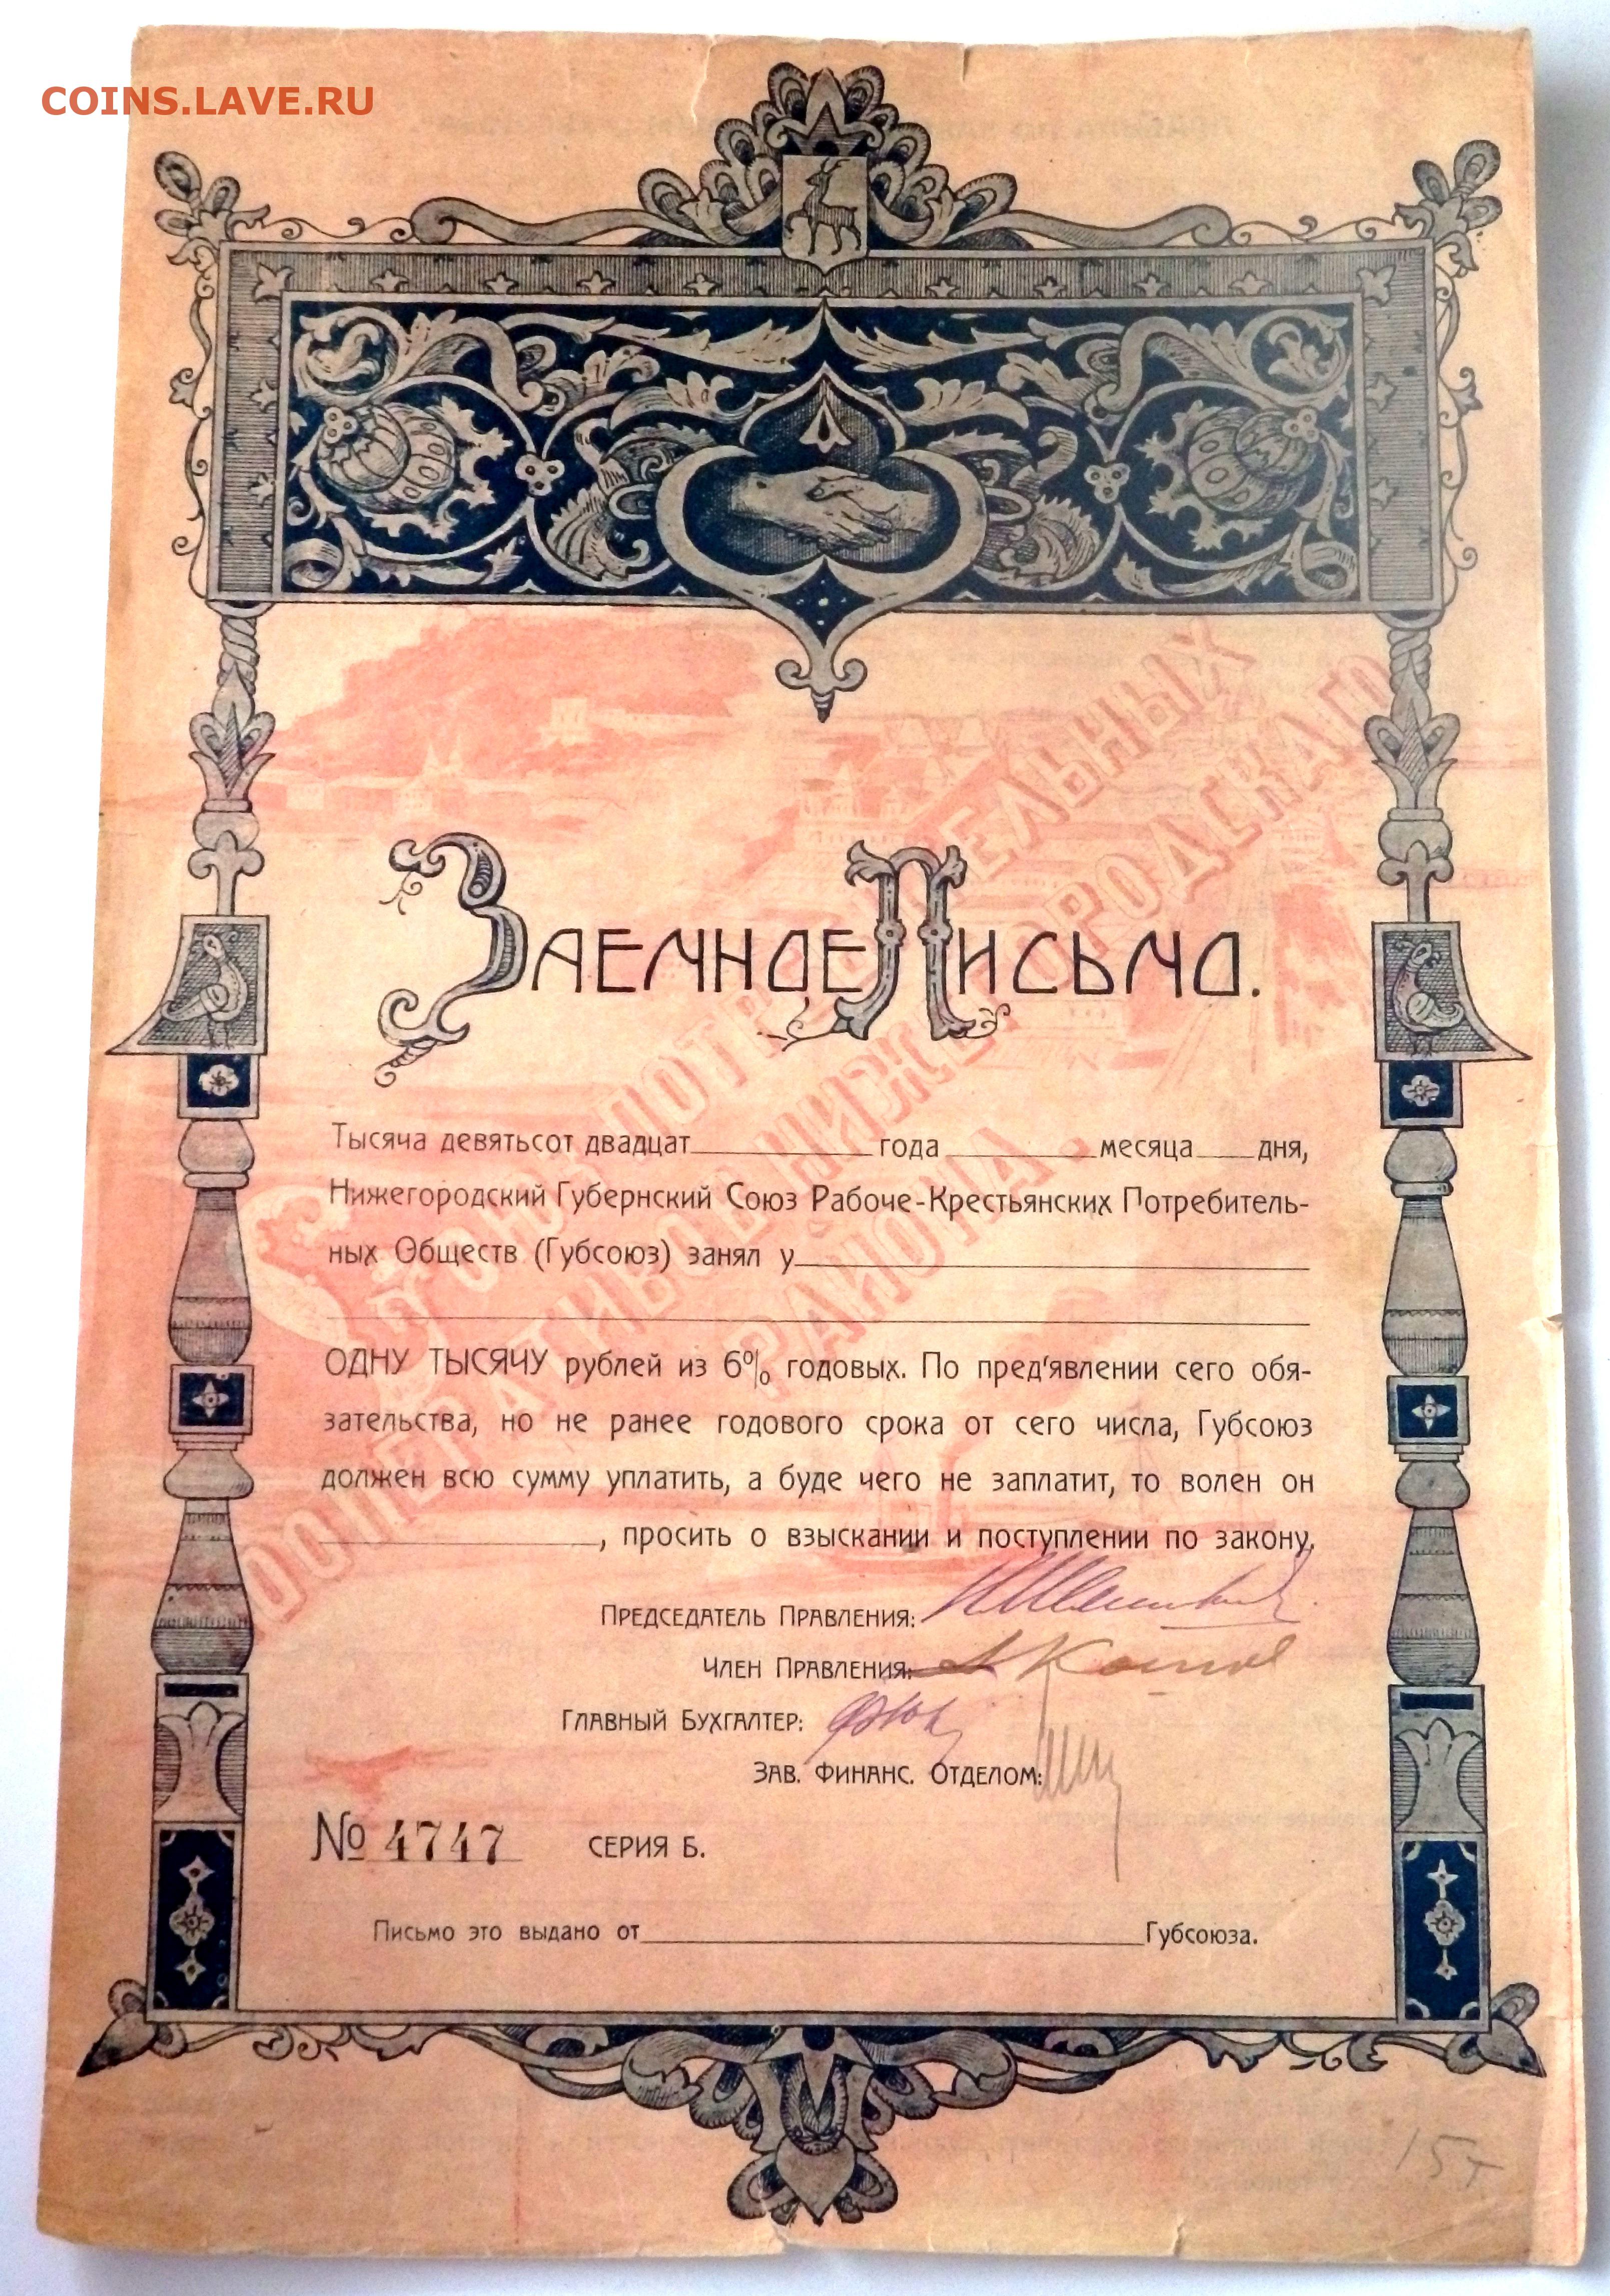 COINS.LAVE.RU
Заемное Письмо.
Тысяча девятьсот двадцат года месяца дня,
Нижегородский Губернский Союз Рабоче-Крестьянских Потребитель-
ных Обществ (Губсоюз) занял у
ОДНУ ТЫСЯЧУ рублей из 6% годовых. По пред'явлении сего обя-
зательства, но не ранее годового срока от сего числа, Губсоюз
должен всю сумму уплатить, а буде чего не заплатит, то волен он
, просить о взыскании и поступлении по закону.
Председатель Правления:
Член Правления:
Главный Бухгалтер:
Зав. финанс. Отделом:
№ 4747 СЕРИЯ Б.
Письмо это выдано от Губсоюза.
15т